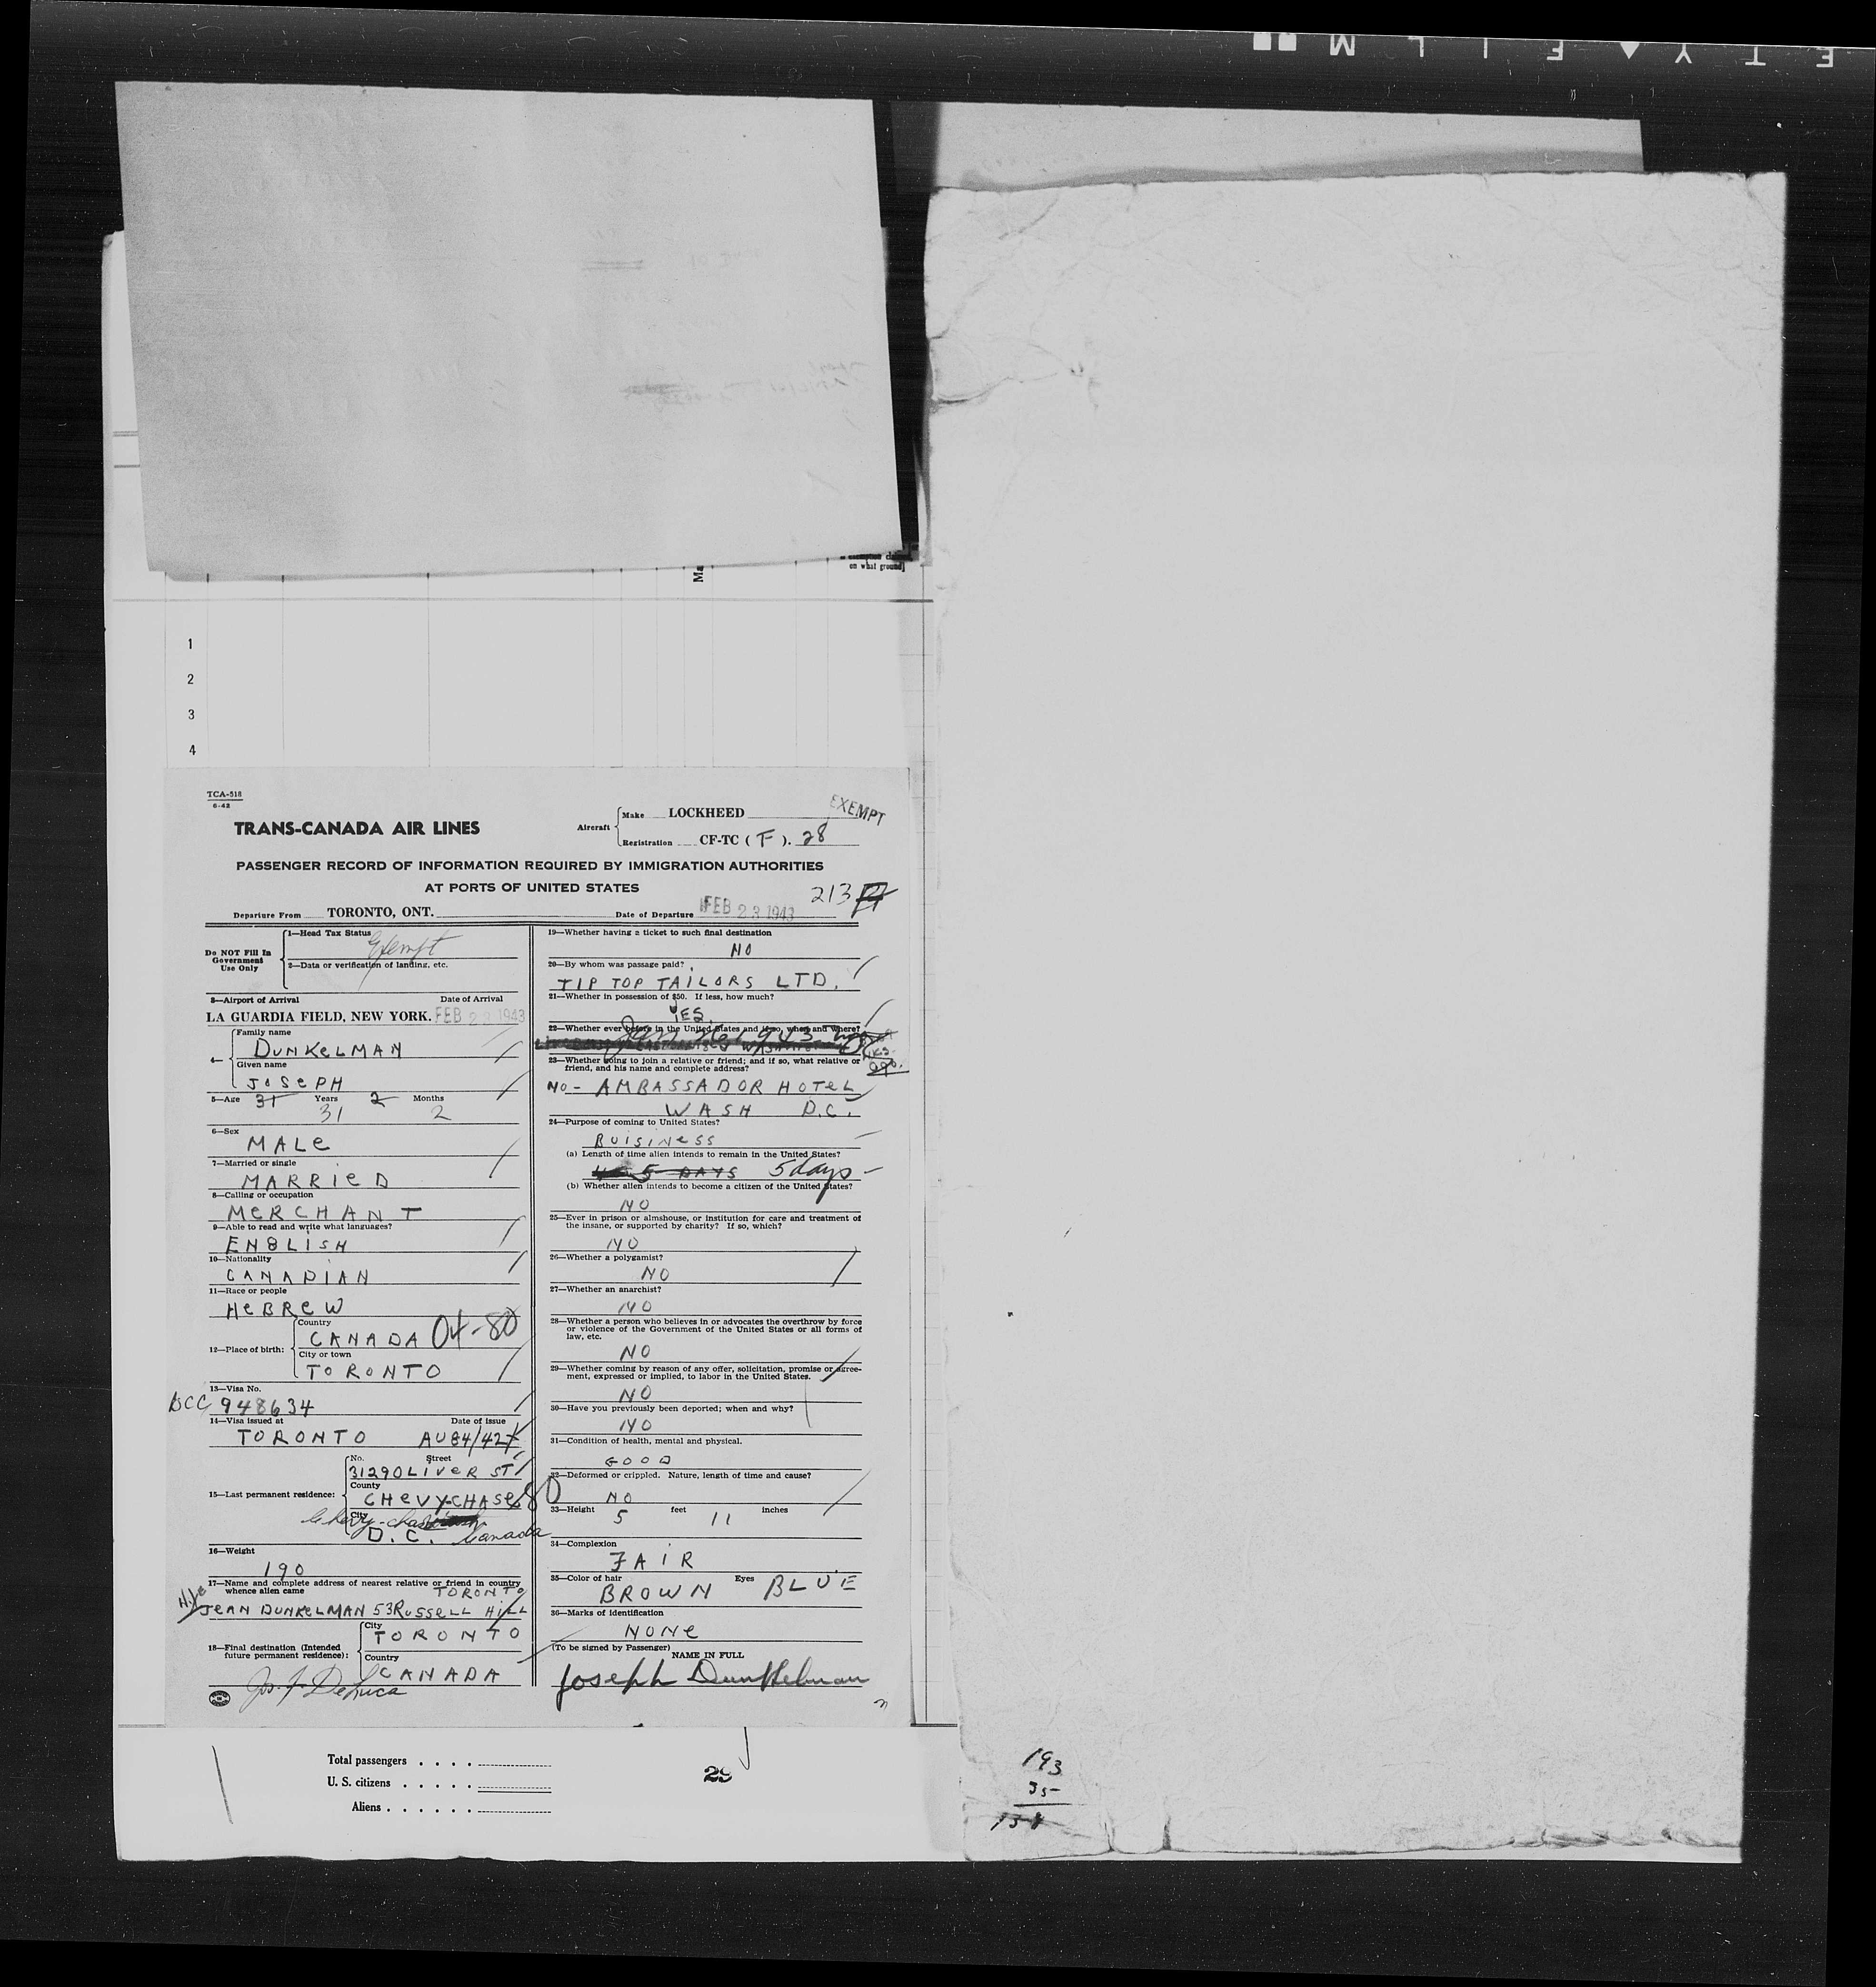 ETY▲FILM■■
exemption claimed
on what ground]
Ma
1
2
3
4
TCA-518
6-42
TRANS-CANADA AIR LINES
Aircraft
Make LOCKHEED
EXEMPT
Registration CF-TC ( F ). 28
PASSENGER RECORD OF INFORMATION REQUIRED BY IMMIGRATION AUTHORITIES
AT PORTS OF UNITED STATES
213
Departure From TORONTO, ONT.
Date of Departure FEB 23 1943
Do NOT Fill In
Government
Use Only
1—Head Tax Status
Exempt
2—Data or verification of landing, etc.
3—Airport of Arrival Date of Arrival
LA GUARDIA FIELD, NEW YORK. FEB 23 1943
4—
Family name
DUNKELMAN
Given name
JOSEPH
5—Age 31 Years 2 Months
31 2
6—Sex
MALE
7—Married or single
MARRIED
8—Calling or occupation
MERCHANT
9—Able to read and write what languages?
ENGLISH
10—Nationality
CANADIAN
11—Race or people
HEBREW
12—Place of birth:
Country
CANADA 04-80
City or town
TORONTO
13—Visa No.
BCC 948634
14—Visa issued at Date of issue
TORONTO AUG4/42
15—Last permanent residence:
No. Street
3129 OLIVER ST
County
CHEVY-CHASE 80
City
Chevy-chase
D.C. Canada
16—Weight
190
17—Name and complete address of nearest relative or friend in country
whence alien came TORONTO
JEAN DUNKELMAN 53 RUSSELL HILL
18—Final destination (Intended
future permanent residence):
City
TORONTO
Country
CANADA
Jos. F. DeLuca
19—Whether having a ticket to such final destination
NO
20—By whom was passage paid?
TIP TOP TAILORS LTD.
21—Whether in possession of $50. If less, how much?
YES
22—Whether ever before in the United States and if so, when and where?
Jan 1943
23—Whether going to join a relative or friend; and if so, what relative or
friend, and his name and complete address?
NO - AMBASSADOR HOTEL
WASH D.C.
24—Purpose of coming to United States?
BUISINESS
(a) Length of time alien intends to remain in the United States?
5 DAYS 5 days
(b) Whether alien intends to become a citizen of the United States?
NO
25—Ever in prison or almshouse, or institution for care and treatment of
the insane, or supported by charity? If so, which?
NO
26—Whether a polygamist?
NO
27—Whether an anarchist?
NO
28—Whether a person who believes in or advocates the overthrow by force
or violence of the Government of the United States or all forms of
law, etc.
NO
29—Whether coming by reason of any offer, solicitation, promise or agree-
ment, expressed or implied, to labor in the United States.
NO
30—Have you previously been deported; when and why?
NO
31—Condition of health, mental and physical.
GOOD
32—Deformed or crippled. Nature, length of time and cause?
NO
33—Height feet inches
5 11
34—Complexion
FAIR
35—Color of hair Eyes
BROWN BLUE
36—Marks of identification
NONE
(To be signed by Passenger)
NAME IN FULL
Joseph Dunkelman
Total passengers . . . .
U. S. citizens . . . . .
Aliens . . . . . .
29
193
35